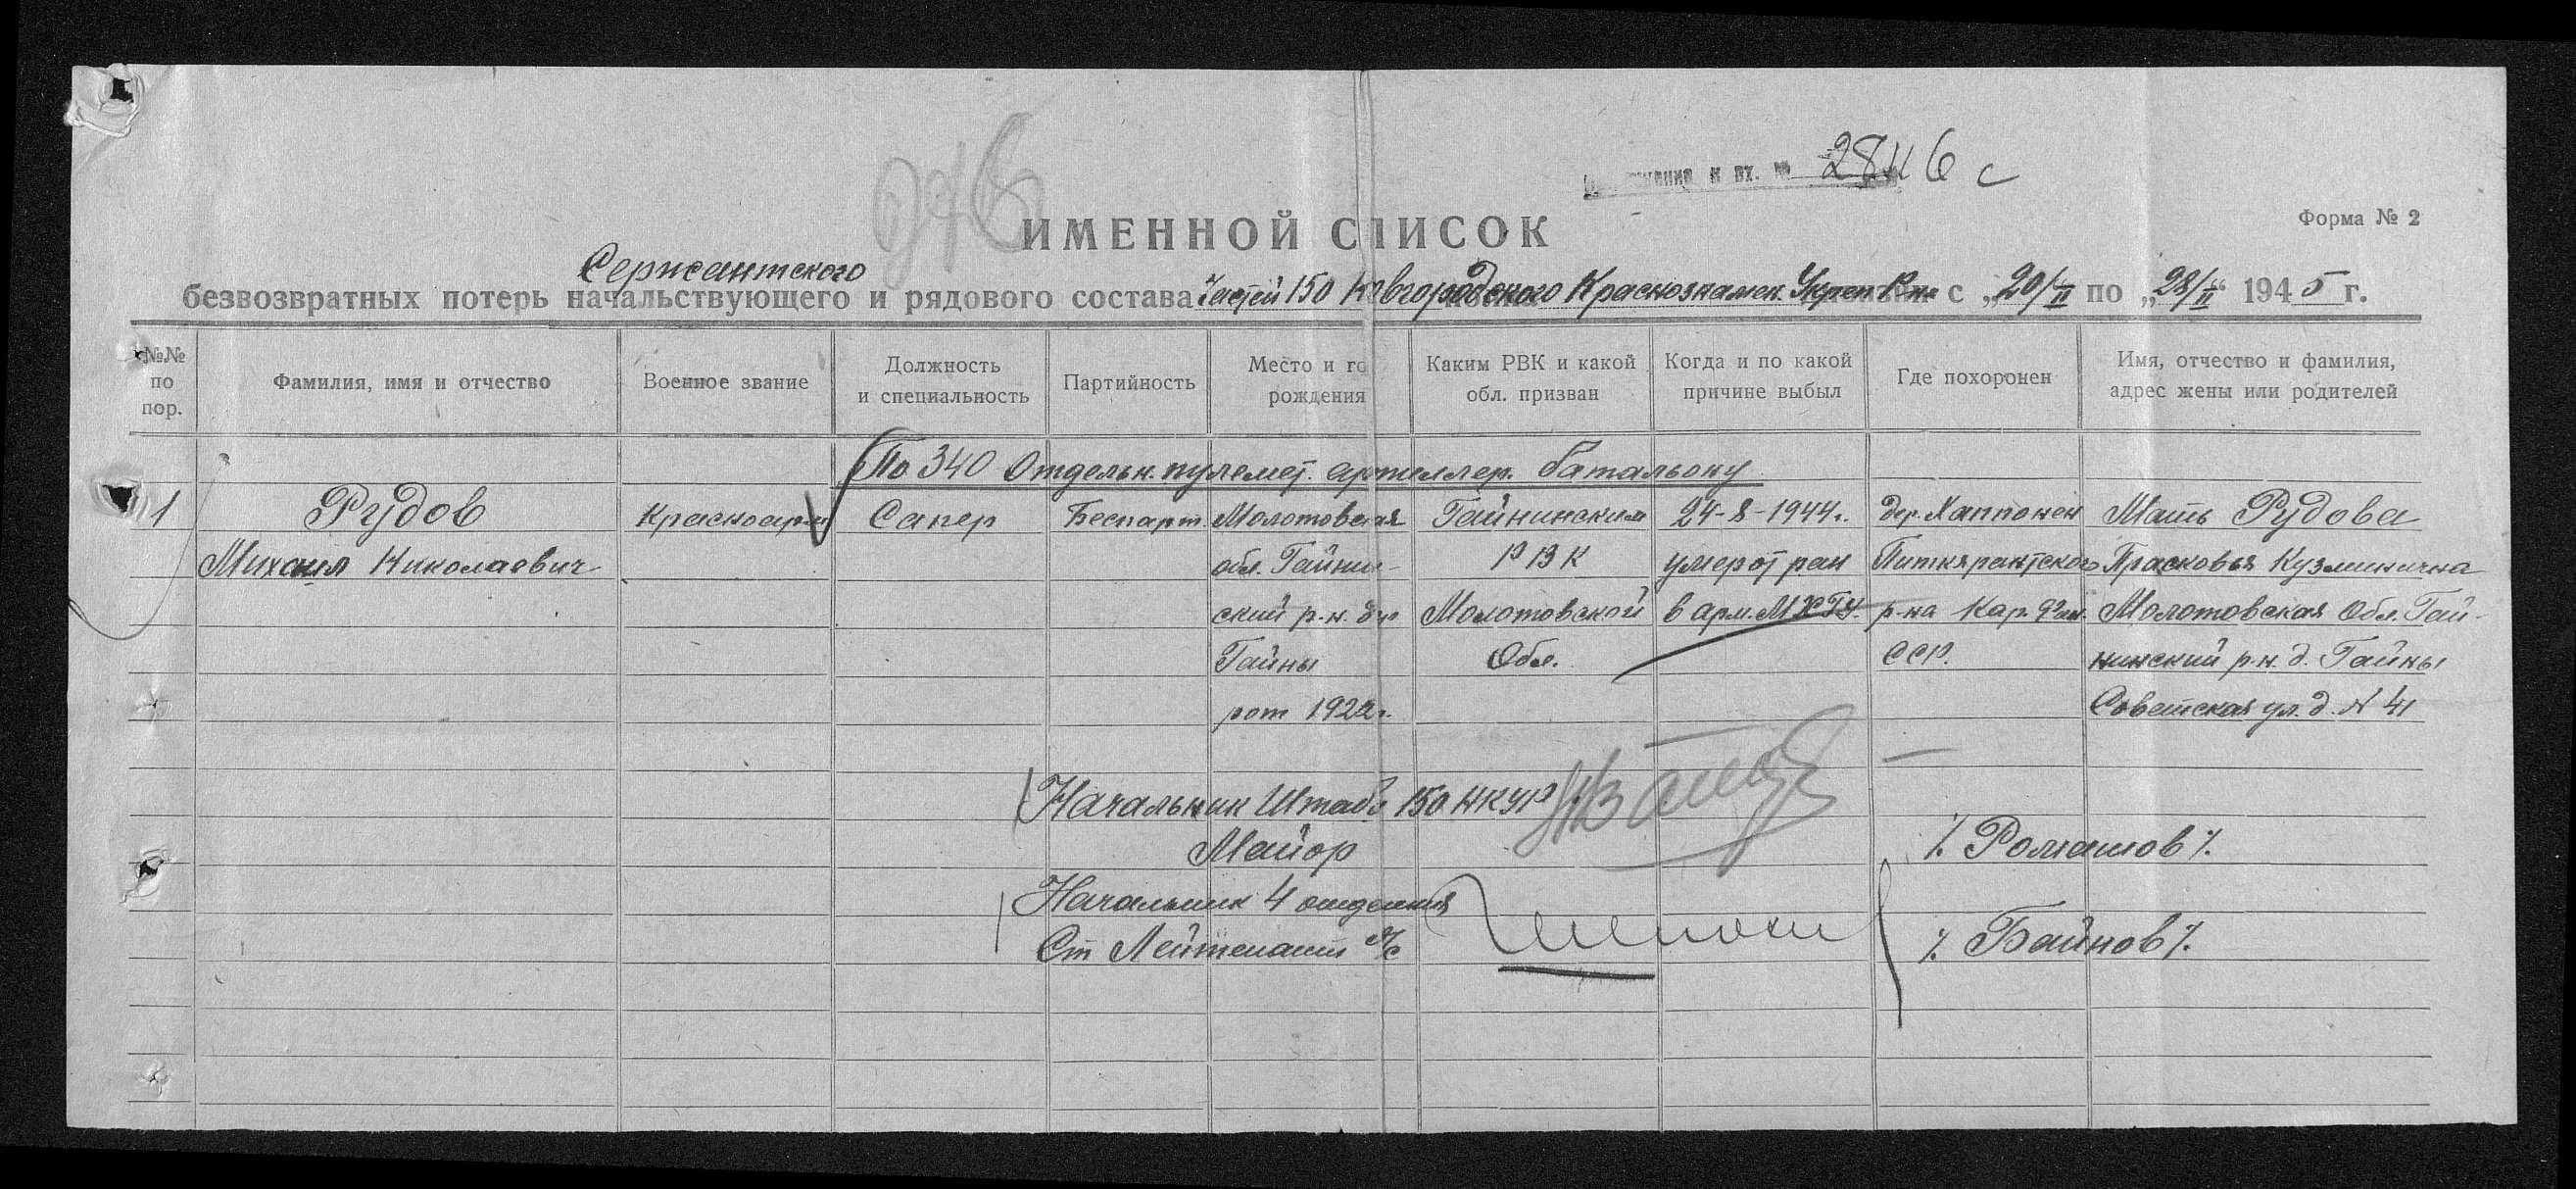 к вх. № 28116 с
ИМЕННОЙ СПИСОК
Форма № 2
Сержантского
безвозвратных потерь начальствующего и рядового состава частей 150 Новгородского Краснознамен. Укреп Р-на с „20/II по „28/II“ 1945 г.
№№ по пор.
Фамилия, имя и отчество
Военное звание
Должность и специальность
Партийность
Место и го рождения
Каким РВК и какой обл. призван
Когда и по какой причине выбыл
Где похоронен
Имя, отчество и фамилия, адрес жены или родителей
По 340 Отдельн. пулемет. артиллер. батальону
1 Рудов Красноарм Сапер Беспарт. Молотовская Гайнинским 24-8-1944г. дер. Хаппонен Мать Рудова
Михаил Николаевич обл. Гайнин- РВК умер от ран Питкярантского Прасковья Кузминична
ский р-н. дер Молотовской в арм. МХГУ. р-на Кар. Фин. Молотовская Обл. Гай-
Гайны Обл. ССР. нинский р-н. д. Гайны
рот 1922г. Советская ул. д. № 41
Начальник Штаба 150 НКУР
Майор /. Ромашов /.
Начальник 4 отделения
Ст Лейтенант а/с /. Байнов /.